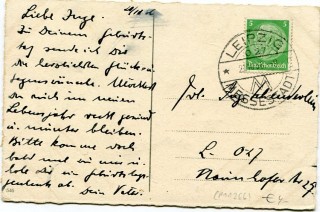 Liebe Inge.
Zu Deinem Geburts-
tag sende ich Dir
die herzlichsten Glück-
wünsche. Möchtest
Du auch im neuen
Lebensjahr recht gesund
u. munter bleiben.
Bitte komme doch
bald mal zu mir u.
hole Dir ein Geburtstags-
geschenk ab. Dein Vater.
5 5
Deutsches Reich
LEIPZIG
MESSESTADT
Frl. Inge
L. O 27
Naunhofer Str. 29